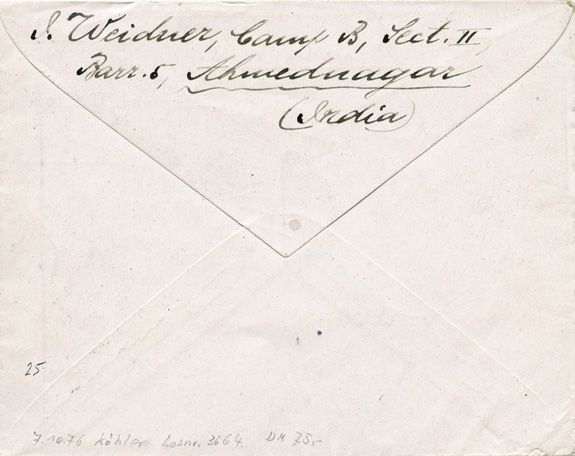 J. Weidner, Camp B, Sect. II
Barr. 5, Ahmednagar
(India)
25.
7.10.76 Köhler Losnr. 3664. DM 75,-